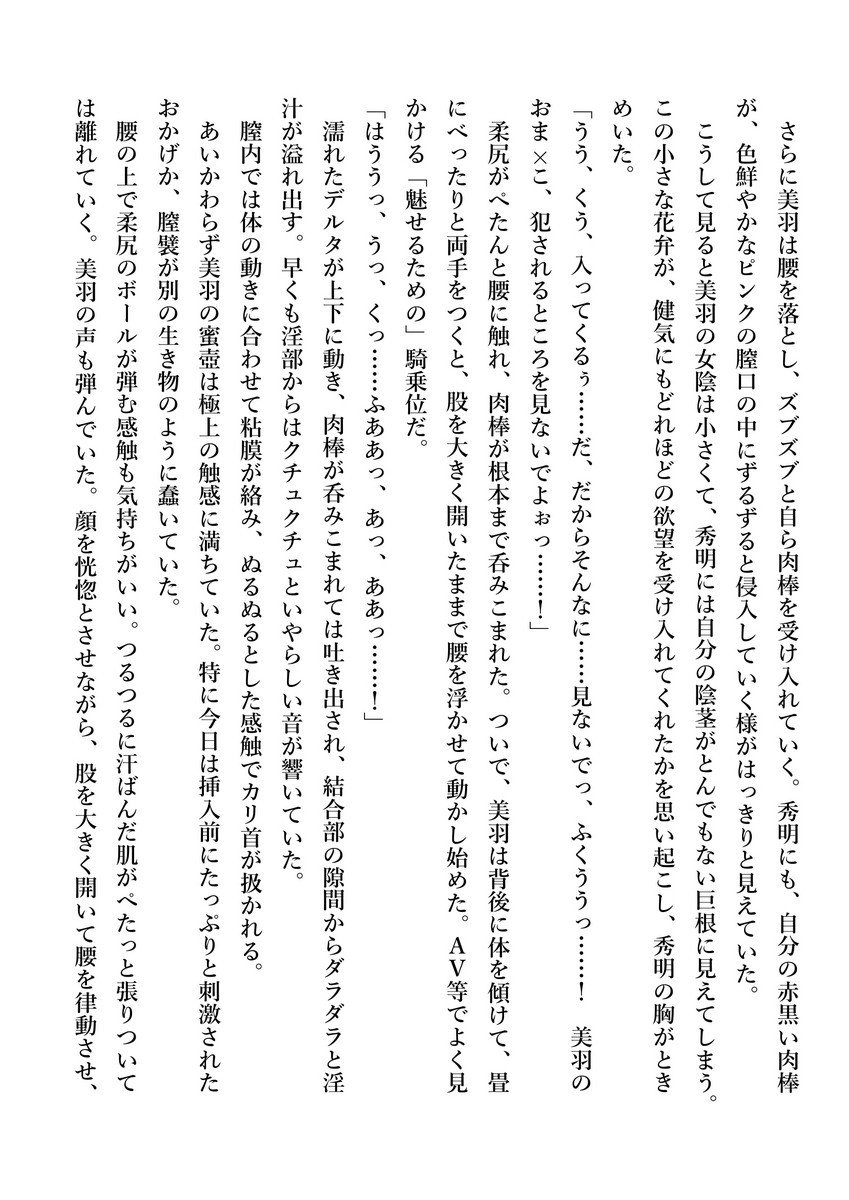 さらに美羽は腰を落とし、ズブズブと自ら肉棒を受け入れていく。秀明にも、自分の赤黒い肉棒
が、色鮮やかなピンクの膣口の中にずるずると侵入していく様がはっきりと見えていた。
こうして見ると美羽の女陰は小さくて、秀明には自分の陰茎がとんでもない巨根に見えてしまう。
この小さな花弁が、健気にもどれほどの欲望を受け入れてくれたかを思い起こし、秀明の胸がとき
めいた。
「うう、くう、入ってくるぅ……だ、だからそんなに……見ないでっ、ふくううっ……！　美羽の
おま×こ、犯されるところを見ないでよぉっ……！」
柔尻がぺたんと腰に触れ、肉棒が根本まで呑みこまれた。ついで、美羽は背後に体を傾けて、畳
にべったりと両手をつくと、股を大きく開いたままで腰を浮かせて動かし始めた。ＡＶ等でよく見
かける「魅せるための」騎乗位だ。
「はううっ、うっ、くっ……ふああっ、あっ、ああっ……！」
濡れたデルタが上下に動き、肉棒が呑みこまれては吐き出され、結合部の隙間からダラダラと淫
汁が溢れ出す。早くも淫部からはクチュクチュといやらしい音が響いていた。
膣内では体の動きに合わせて粘膜が絡み、ぬるぬるとした感触でカリ首が扱かれる。
あいかわらず美羽の蜜壺は極上の触感に満ちていた。特に今日は挿入前にたっぷりと刺激された
おかげか、膣襞が別の生き物のように蠢いていた。
腰の上で柔尻のボールが弾む感触も気持ちがいい。つるつるに汗ばんだ肌がぺたっと張りついて
は離れていく。美羽の声も弾んでいた。顔を恍惚とさせながら、股を大きく開いて腰を律動させ、